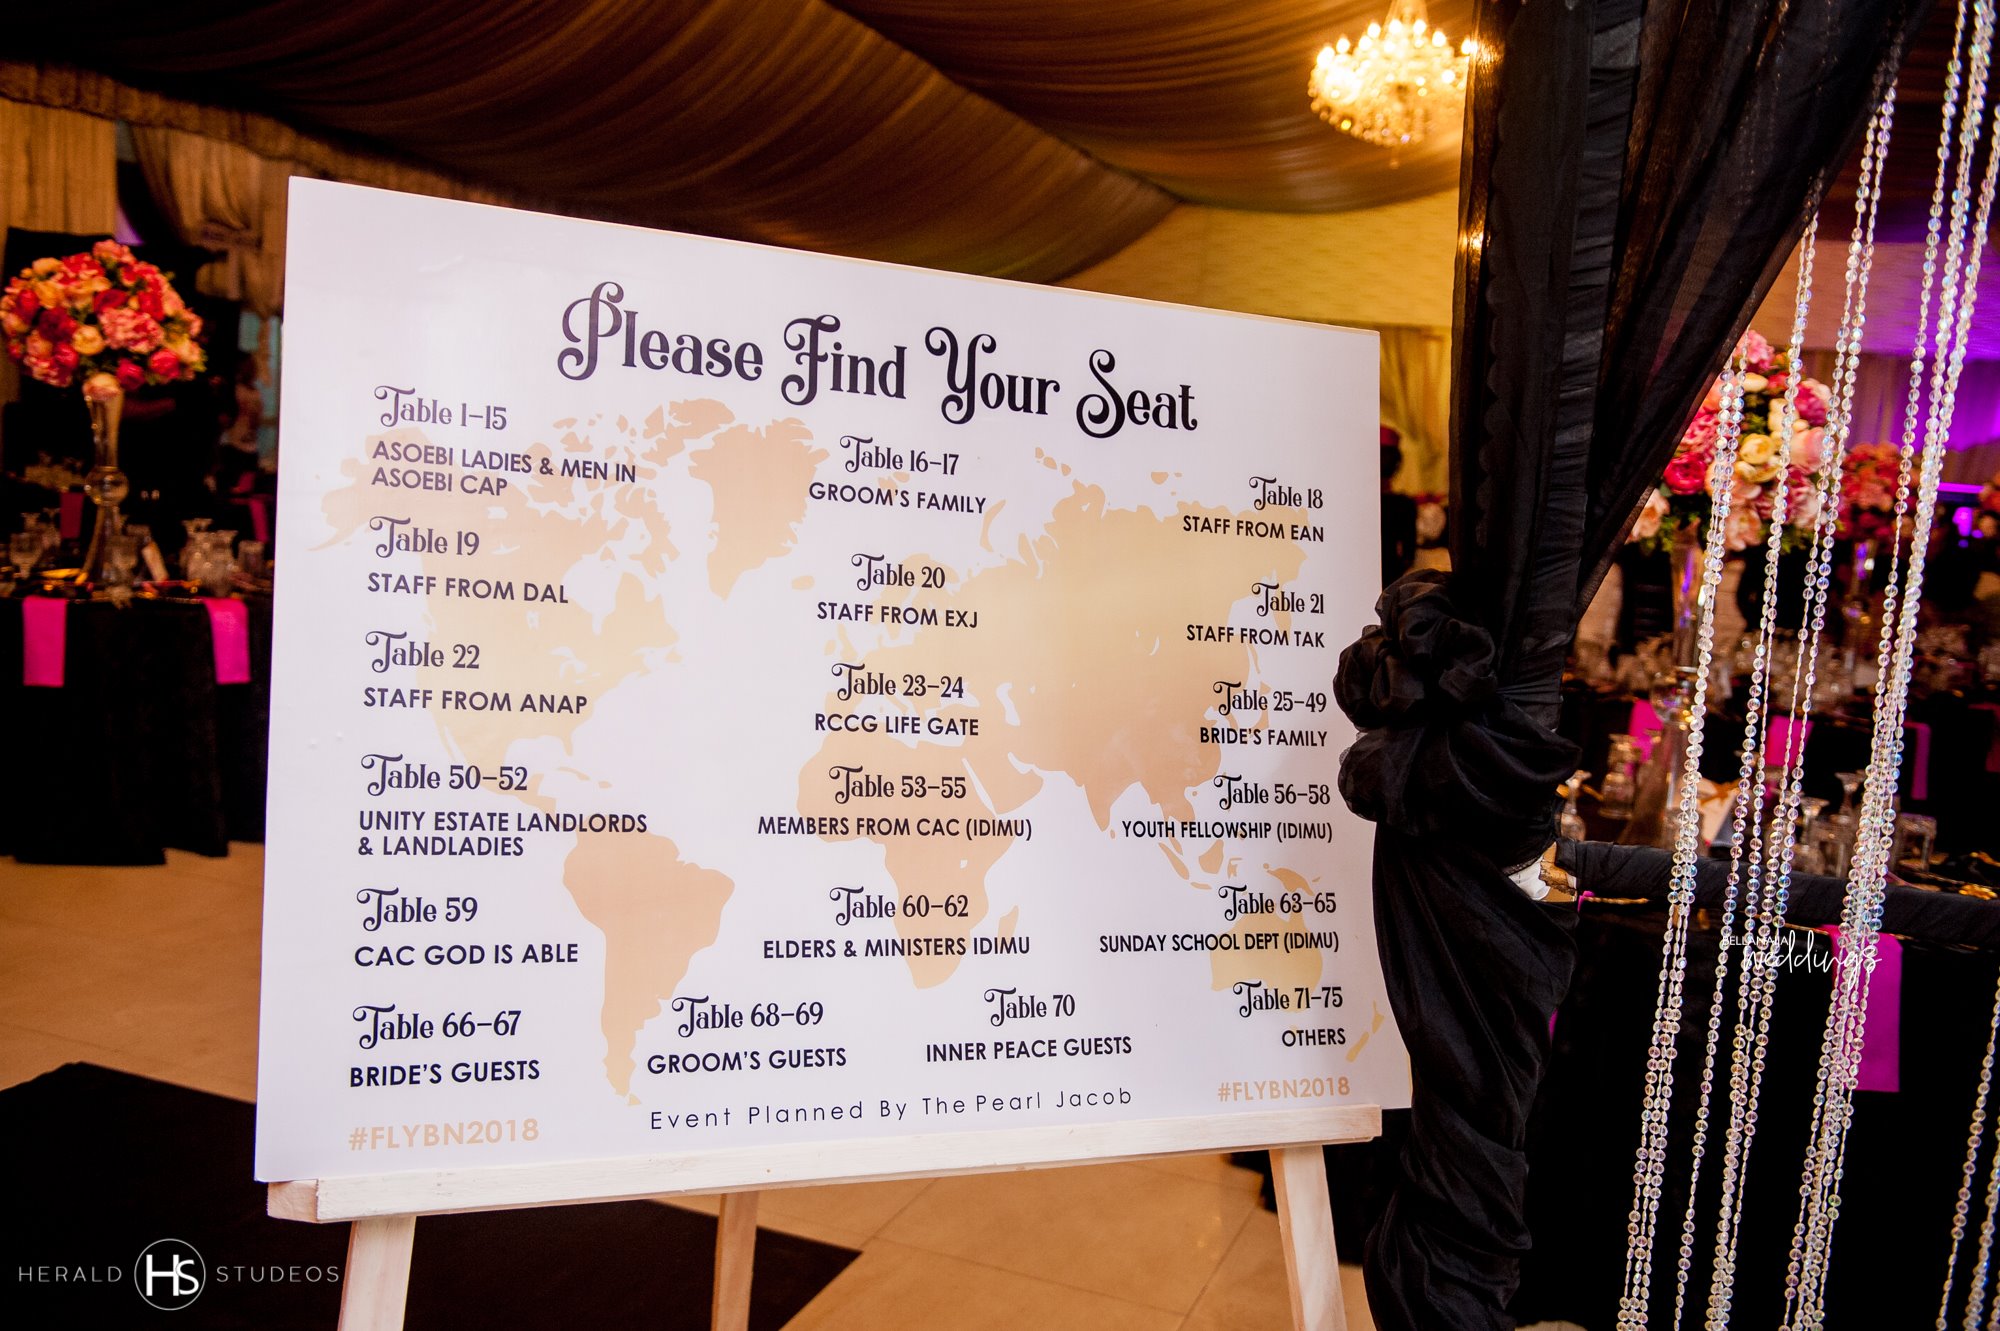 Please Find Your Seat
Table 1-15
ASOEBI LADIES & MEN IN
ASOEBI CAP
Table 16-17
GROOM'S FAMILY
Table 18
STAFF FROM EAN
Table 19
STAFF FROM DAL
Table 20
STAFF FROM EXJ
Table 21
STAFF FROM TAK
Table 22
STAFF FROM ANAP
Table 23-24
RCCG LIFE GATE
Table 25-49
BRIDE'S FAMILY
Table 50-52
UNITY ESTATE LANDLORDS
& LANDLADIES
Table 53-55
MEMBERS FROM CAC (IDIMU)
Table 56-58
YOUTH FELLOWSHIP (IDIMU)
Table 59
CAC GOD IS ABLE
Table 60-62
ELDERS & MINISTERS IDIMU
Table 63-65
SUNDAY SCHOOL DEPT (IDIMU)
Table 66-67
BRIDE'S GUESTS
Table 68-69
GROOM'S GUESTS
Table 70
INNER PEACE GUESTS
Table 71-75
OTHERS
#FLYBN2018
Event Planned By The Pearl Jacob
#FLYBN2018
BELLANAIJA
weddings
HERALD HS STUDEOS